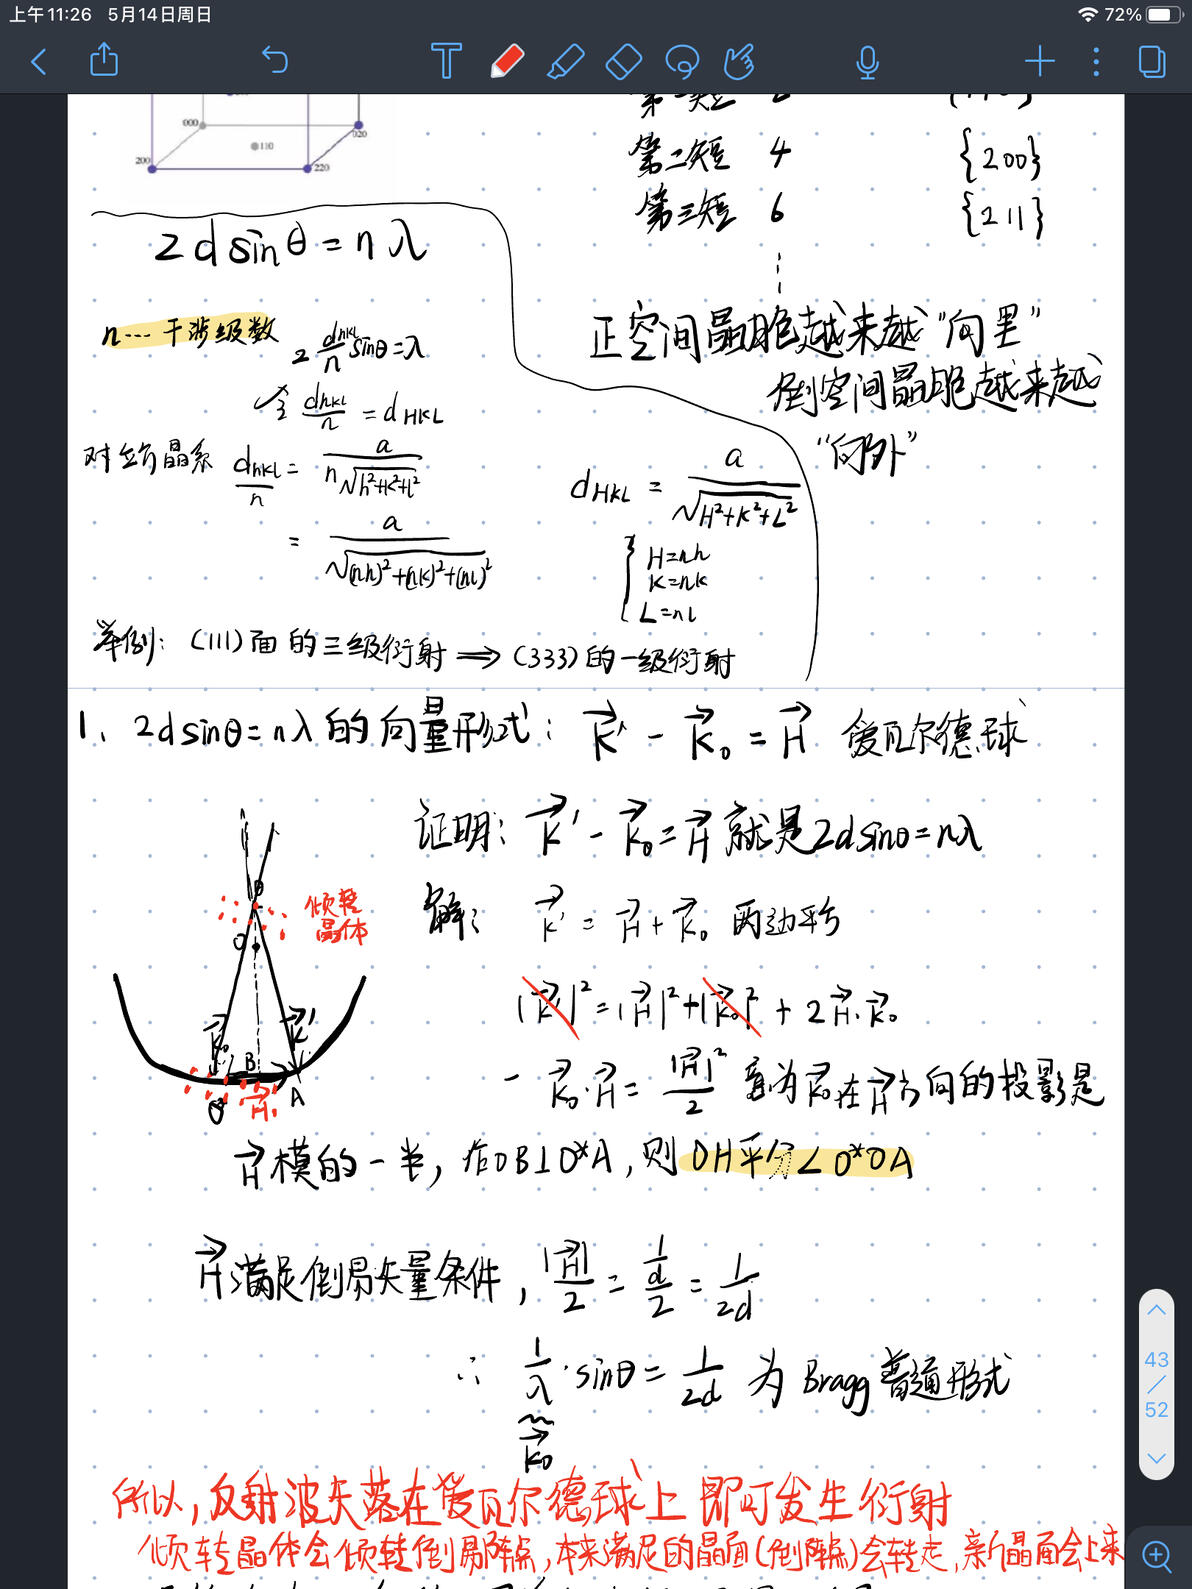 上午11:26 5月14日周日
72%
000
020
110
200
220
第二短 4 {200}
第三短 6 {211}
2dsinθ=nλ
n---干涉级数
2 dhkl/n sinθ=λ
令 dhkl/n = dHKL
对立方晶系 dhkl/n = a/n√h²+k²+l²
= a/√(nh)²+(nk)²+(nl)²
正空间晶胞越来越“向里”
倒空间晶胞越来越
“向外”
dHKL = a/√H²+K²+L²
H=nh
K=nk
L=nl
举例: (111)面的三级衍射⟹(333)的一级衍射
1、2dsinθ=nλ的向量形式: K⃗'-K⃗₀=H⃗ 爱瓦尔德球
证明: K⃗'-K⃗₀=H⃗就是2dsinθ=nλ
解: K⃗'=H⃗+K⃗₀ 两边平方
|K⃗'|²=|H⃗|²+|K⃗₀|²+2H⃗·K⃗₀
-K⃗₀·H⃗=|H⃗|²/2 意为K⃗₀在H⃗方向的投影是
H⃗模的一半,若OB⊥O*A,则OH平分∠O*OA
倾转
晶体
O
K⃗₀
K⃗'
B
O*
H⃗
A
H⃗满足倒易矢量条件, |H⃗|/2 = 1/d/2 = 1/2d
∴ 1/λ·sinθ=1/2d 为Bragg普通形式
K⃗₀
所以,反射波矢落在爱瓦尔德球上即可发生衍射
倾转晶体会倾转倒易阵点,本来满足的晶面(倒阵点)会转走,新晶面会上来
43
/
52